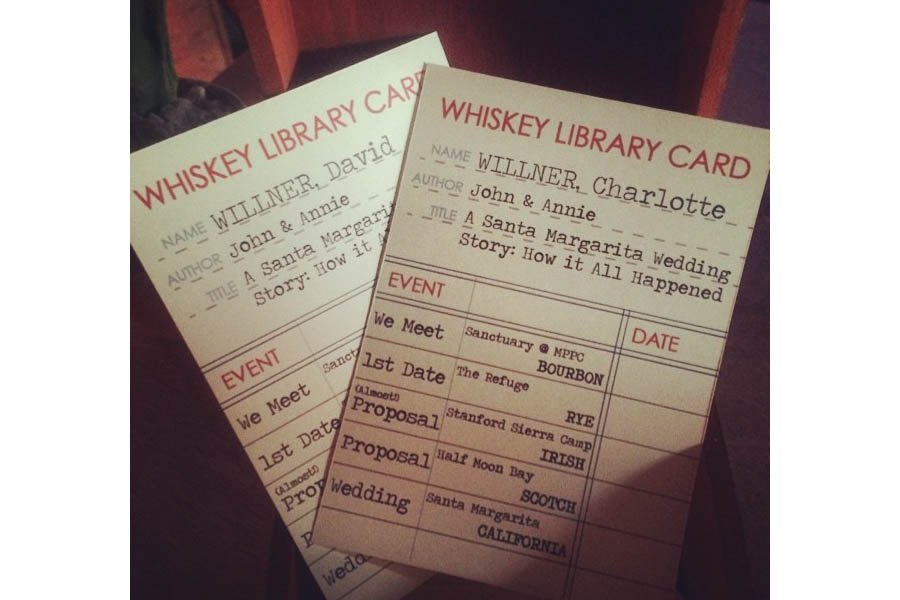 WHISKEY LIBRARY CARD
NAME WILLNER, David
AUTHOR John & Annie
TITLE A Santa
Story: How it
EVENT
We Meet
1st Date
(Almost!)
WHISKEY LIBRARY CARD
NAME WILLNER, Charlotte
AUTHOR John & Annie
TITLE A Santa Margarita Wedding
Story: How it All Happened
EVENT DATE
We Meet Sanctuary @ MPPC
BOURBON
1st Date The Refuge
RYE
(Almost!)
Proposal Stanford Sierra Camp
IRISH
Proposal Half Moon Bay
SCOTCH
Wedding Santa Margarita
CALIFORNIA